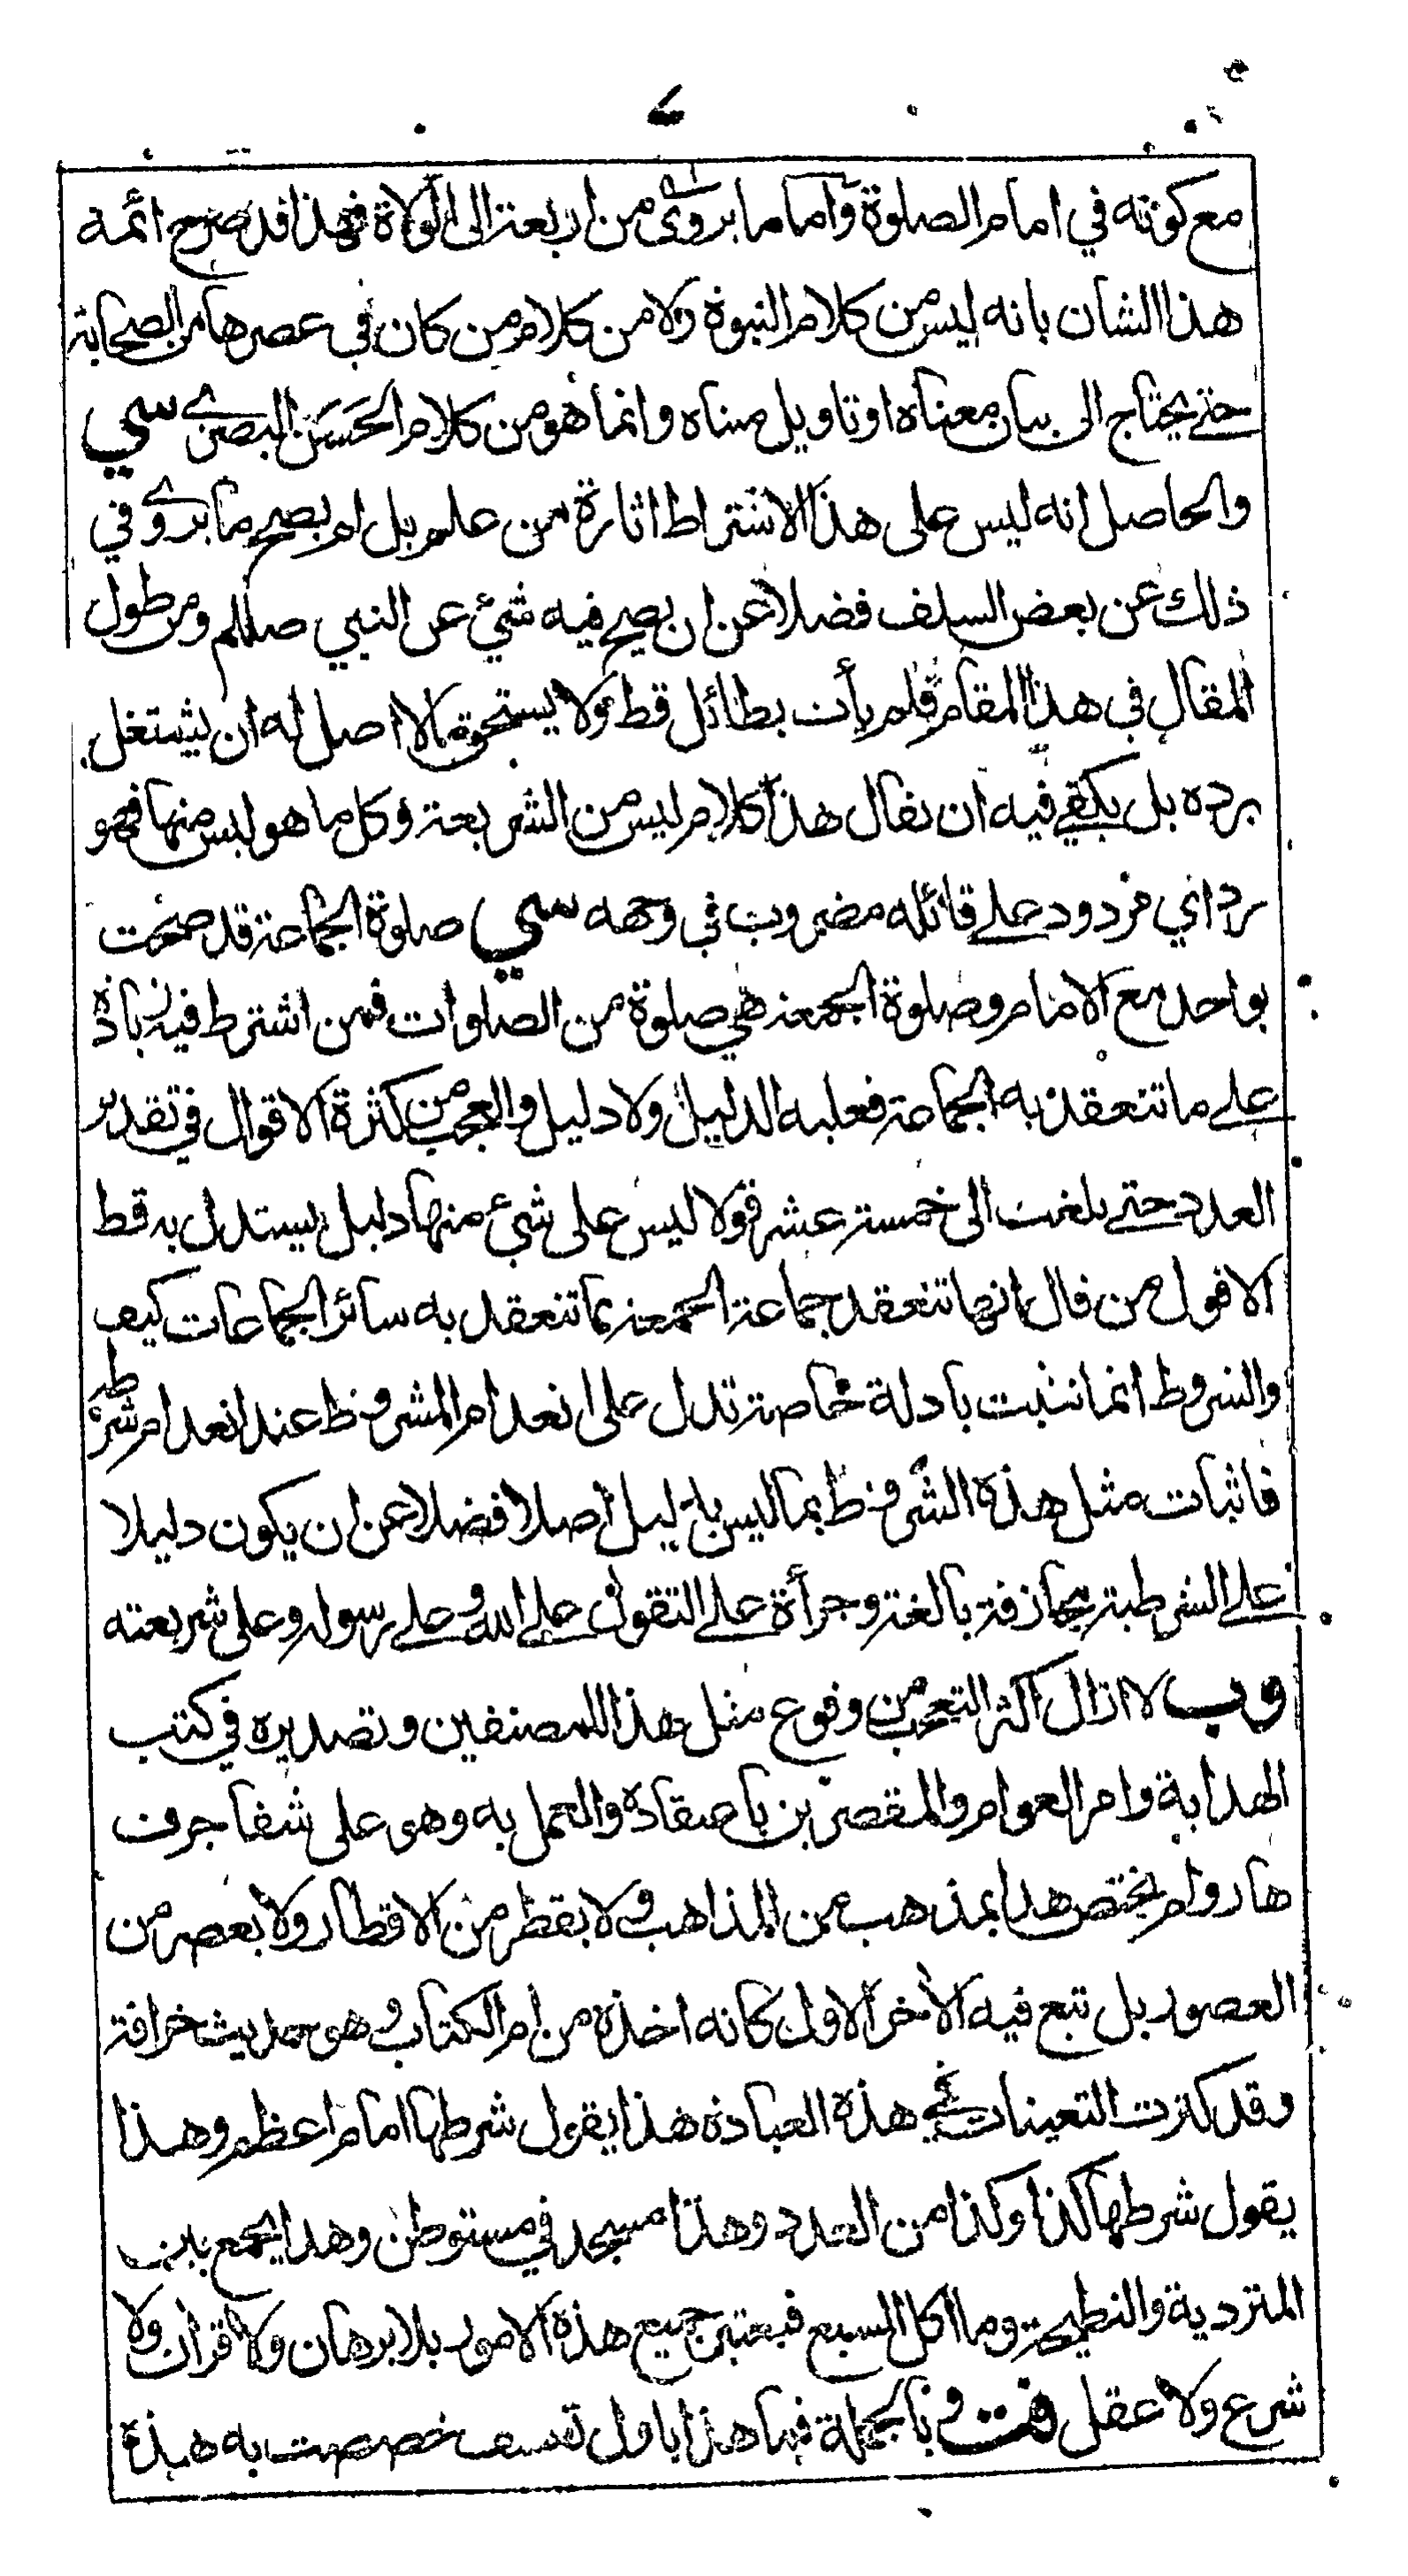 مع كونه في امام الصلوة واما ما يروى من اربعة الى الولاة فهذا قد صرح ائمة
هذا الشان بانه ليس من كلام النبوة ولا من كلام من كان في عصرها من الصحابة
حتى يحتاج الى بيان معناه او تاويل مبناه وانما هو من كلام الحسن البصري سي
والحاصل انه ليس على هذا الاشتراط اثارة من علم بل لم يصح ما يروى في
ذلك عن بعض السلف فضلا عن ان يصح فيه شئ عن النبي صلالم ومن طول
المقال في هذا المقام فلم يأت بطائل قط ولا يستحق ما لا اصل له ان يشتغل
برده بل يكفي فيه ان يقال هذا كلام ليس من الشريعة وكل ما هو ليس منها فهو
رد اي مردود على قائله مضروب في وجهه سي صلوة الجماعة قد صحت
بواحد مع الامام وصلوة الجمعة هي صلوة من الصلوات فمن اشترط فيه زيادة
على ما تنعقد به الجماعة فعليه الدليل ولا دليل والعجب من كثرة الاقوال في تقدير
العدد حتى بلغت الى خمسة عشر قولا ليس على شئ منها دليل يستدل به قط
الا قول من قال انها تنعقد جماعة الجمعة بما تنعقد به سائر الجماعات كيف
والشروط انما تثبت بادلة خاصة تدل على انعدام المشروط عند انعدام شرطه
فاثبات مثل هذه الشروط بما ليس بدليل اصلا فضلا عن ان يكون دليلا
على الشرطية مجازفة بالغة وجرأة على التقول على الله وعلى رسوله وعلى شريعته
وب لا ازال اكثر التعجب من وقوع مثل هذا للمصنفين وتصديره في كتب
الهداية وامر العوام والمقصرين باعتقاده والعمل به وهو على شفا جرف
هار ولم يختص هذا بمذهب من المذاهب ولا بقطر من الاقطار ولا بعصر من
العصور بل تبع فيه الاخر الاول كانه اخذه من ام الكتاب وهو حديث خرافة
وقد كثرت التعينات في هذه العبادة هذا يقول شرطها امام اعظم وهذا
يقول شرطها كذا وكذا من العدد وهذا مسجد في مستوطن وهذا يجمع بين
المتردية والنطيحة وما اكل السبع فيعتبر جميع هذه الامور بلا برهان ولا قرأن ولا
شرع ولا عقل فت وبالجملة فما هذا باول تعسف خصصت به هذه